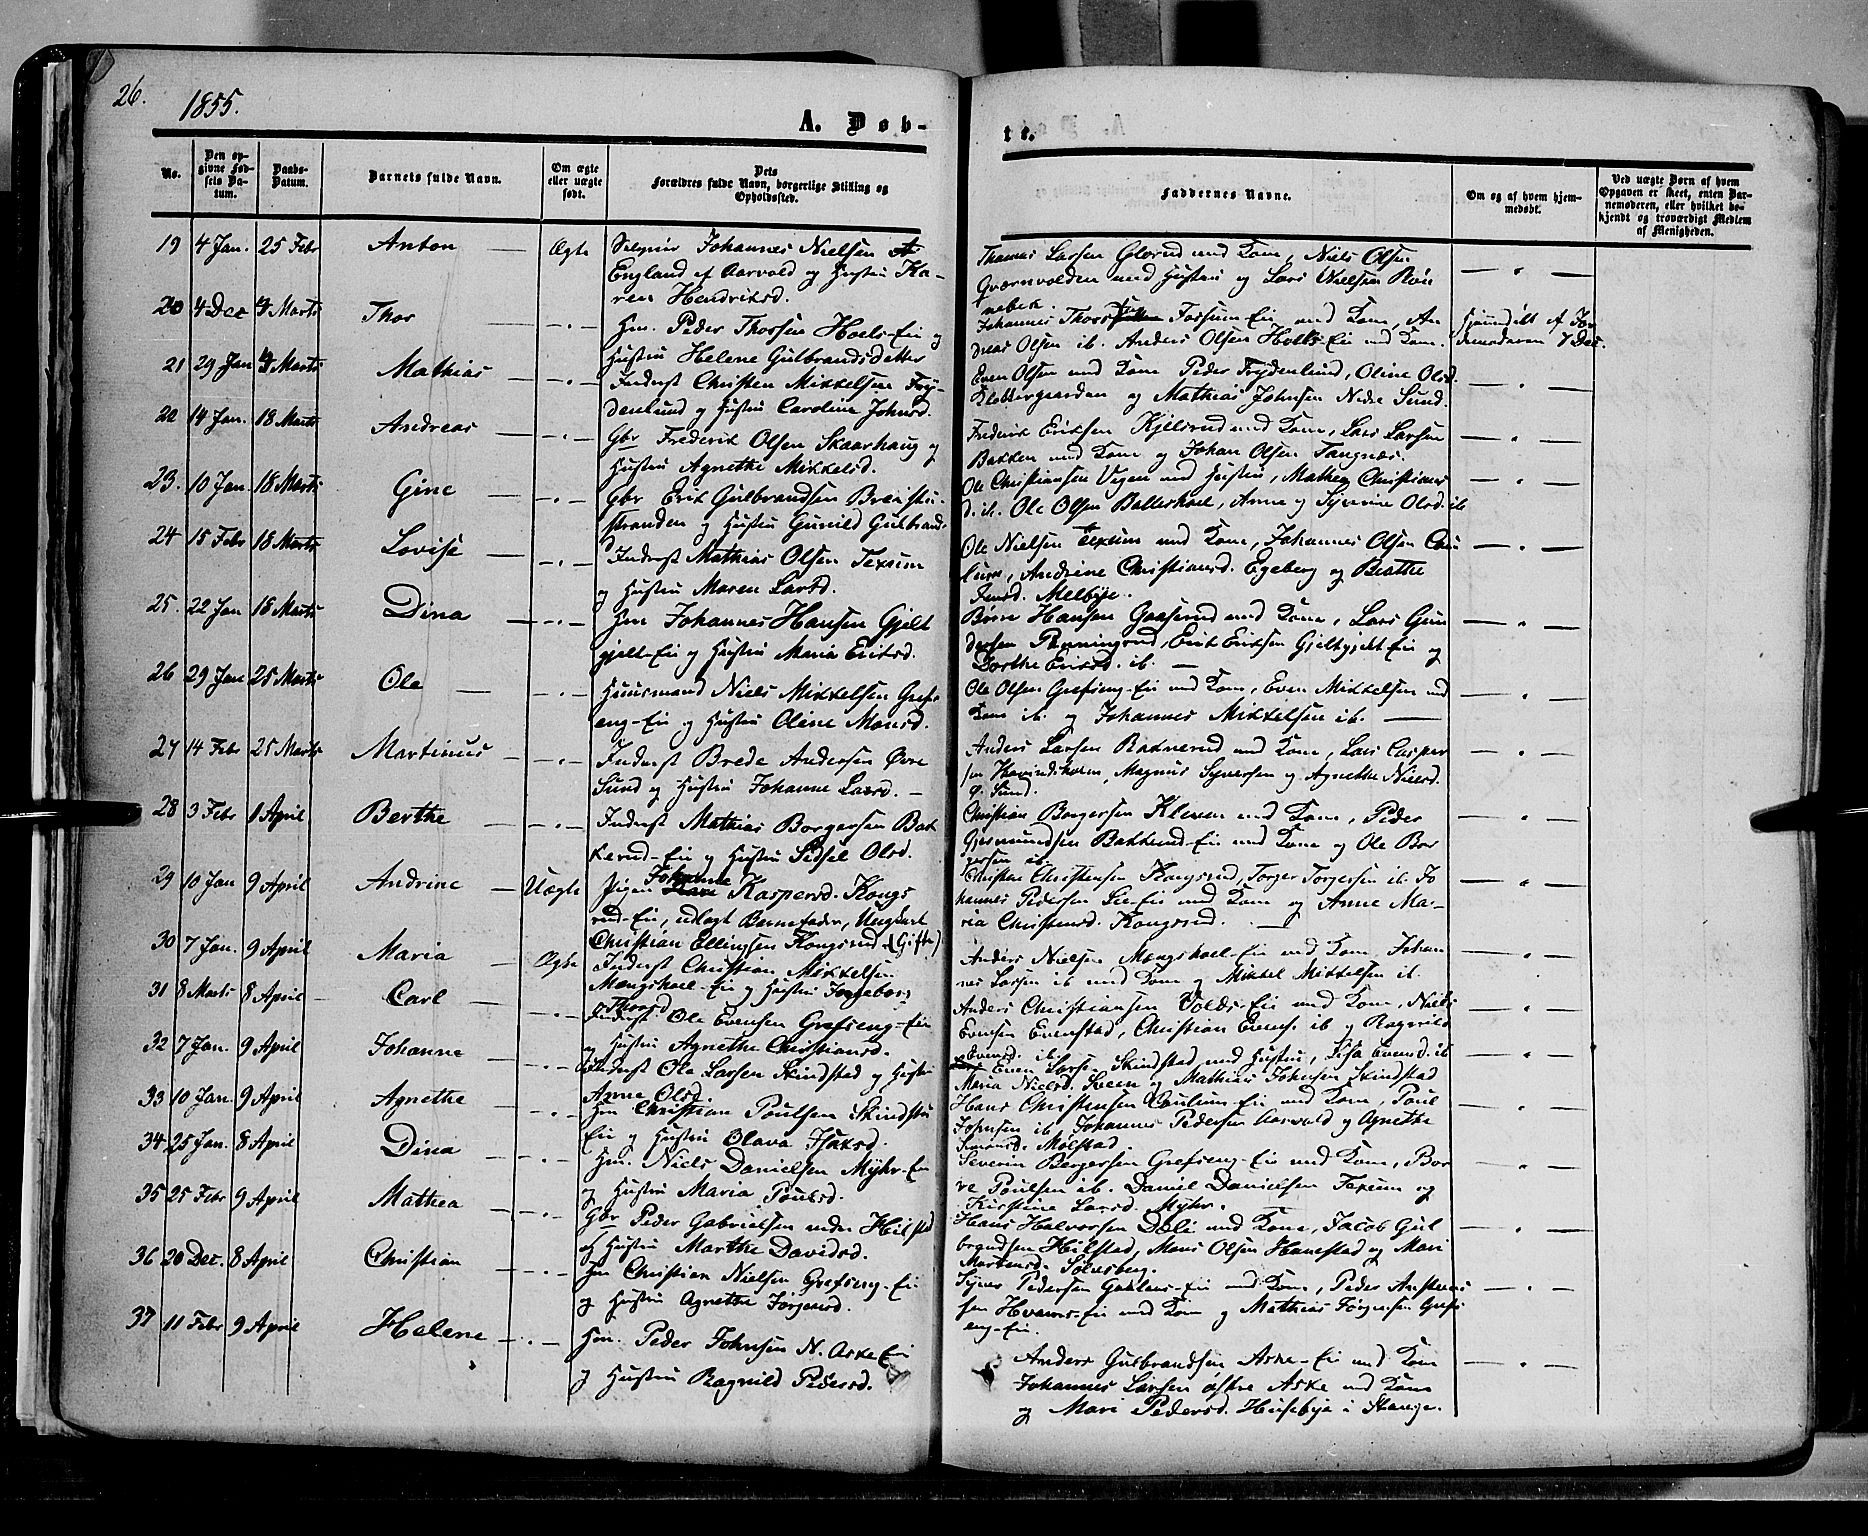 26.
1855.
A. Døb-
te.
No.
Den opgivne Fødsels Datum.
Daabs-Datum.
Barnets fulde Navn.
Om ægte eller uægte født.
Dets Forældres fulde Navn, borgerlige Stilling og Opholdssted.
Faddernes Navne.
Om og af hvem hjemmedøbt.
Ved uægte Børn af hvem Opgaven er skeet, enten Barnemoderen, eller hvilket bekjendt og troværdigt Medlem af Menigheden.
19 4 Jan. 25 Febr Anton — Ægte Johannes Nielsen
England af Aarvold og Hustru Ka-
ren Hendriksd.
Thomas Larsen Glorud med Kone, Niels Olsen
Qværnvolden med Hustru og Lars Nielsen Røn
nebek.
20 4 Dec 4 Marts Thor — " — Hm. Peder Thorsen Hoels-Ei og
Hustru Helene Gulbrandsdatter
Johannes Thors Fossum-Ei med Kone, An
dreas Olsen ib. Anders Olsen Holls-Ei med Kone.
Hjemdøbt af Jor
demoderen 7 Dec.
21 29 Jan 4 Marts Mathias — " — Inderst Christen Mikkelsen Fry-
denlund og Hustru Caroline Johnsd.
Even Olsen med Kone Peder Frydenlund, Oline Olsd.
Klokkergaarden og Mathias Johnsen Nedre Sund.
22 14 Jan. 18 Marts Andreas — " — Gbr Frederik Olsen Skaarhaug og
Hustru Agnethe Mikkelsd.
Frederik Eriksen Kjelsrud med Kone, Lars Larsen
Bakken med Kone og Johan Olsen Tangnæs.
23. 10 Jan 18 Marts Gine — " — Gbr Erik Gulbrandsen
stranden og Hustru Gunild Gulbrands
d
Ole Christiansen Vegen med Hustru, Mathea Christians
d. ib. Ole Olsen Balleshoel, Anne og Syverine Olsd. ib
24 15 Febr 18 Marts Lovise — " — Inderst Mathias Olsen Texum
og Hustru Maren Larsd.
Ole Nielsen Texum med Kone, Johannes Olsen Cau
lum, Andrine Christiansd. Egeberg og Beathe
Jensd. Melbye.
25. 22 Jan 18 Marts Dina — " — Hm Johannes Hansen Gjelt
gjelt-Ei og Hustru Maria Eriksd.
Børre Hansen Gaaserud med Kone, Lars Gun
dersen Penningrud, Erik Eriksen Gjeltgjelt-Ei og
Dorthe Eriksd. ib. —
26 29 Jan 25 Marts Ole — " — Huusmand Niels Mikkelsen Grefs
eng-Ei og Hustru Oline Monsd.
Ole Olsen Grefseng-Ei med Kone, Even Mikkelsen med
Kone ib. og Johannes Mikkelsen ib. —
27 14 Febr 25 Marts Martinus — " — Inderst Brede Andersen Øvre
Sund og Hustru Johanne Larsd. —
Anders Larsen Baknerud med Kone, Lars Casper
sen Hovindsholm, Magnus Syversen og Agnethe Nielsd.
ø. Sund.
28 3 Febr 1 April Berthe — " — Inderst Mathias Borgersen Bak
kerud-Ei og Hustru Sidsel Olsd.
Christian Borgersen Kleven med Kone, Peder
Gjermundsen Bakkerud-Ei med Kone og Ole Bor
gersen ib.
29 10 Jan 9 April Andrine — Uægte Pigen Johanne Kaspersd. Kongs
rud-Ei, udlagt Barnefader, Ungkarl
Christian Ellingsen Kongsrud (Gift)
Christen Christensen Kongsrud, Torger Torgersen ib. Jo
hannes Pedersen Lie-Ei med Kone og Anne Ma-
ria Christensd. Kongsrud. —
30 7 Jan. 9 April Maria — Ægte Inderst Christian Mikkelsen
Mængshoel-Ei og Hustru Ingeborg
Thorsd
Anders Nielsen Mængshoel-Ei med Kone, Johan
nes Larsen ib med Kone og Mikkel Mikkelsen ib.
31 8 Marts 8 April — Carl — " — Inderst Ole Evensen Grefseng-Ei
og Hustru Agnethe Christiansd.
Anders Christiansen Volds-Ei med Kone, Niels
Evensen Evenstad, Christian Evens. ib og Ragnild
Evensd. ib.
32 7 Jan. 9 April Johanne — " — Inderst Ole Larsen Skindstad og Hustru
Anne Olsd.
Even Lars. Skindstad med Hustru, Lisa Evensd. ib
Maria Nielsd. Sveen og Mathias Johnsen Skindstad
33 10 Jan. 9 April Agnethe — " — Hm Christian Poulsen Skindstu
Ei og Hustru Olava Isaksd.
Hans Christensen Caulum-Ei med Kone, Poul
Johnsen ib. Johannes Pedersen Aarvold og Agnethe
Simensd. Mølstad.
34 25 Jan. 8 April Dina — " — Hm. Niels Danielsen Myhr-Ei
og Hustru Maria Poulsd.
Severin Bergersen Grefseng-Ei med Kone, Bor
re Poulsen ib. Daniel Danielsen Texum og
Kirstine Larsd. Myhr.
35 25 Febr 9 April Mathea — " — Gbr Peder Gabrielsen nedre Hilstad
og Hustru Marthe Davidsd.
Hans Halvorsen Dæli med Kone, Jacob Gul
brandsen Hilstad, Mons Olsen Hanestad og Mari
Mortensd. Solusberg.
36 20 Dec. 8 April Christian — " — Hm Christian Nielsen Grefseng-Ei
og Hustru Agnethe Jørgensd.
Syver Pedersen Gaklus-Ei med Kone, Peder Anstens
sen Hvams-Ei med Kone og Mathias Jørgensen Grefs
eng-Ei.
37 11 Febr 9 April Helene — " — Hm. Peder Johnsen N. Aske Ei
og Hustru Ragnild Pedersd.
Anders Gulbrandsen Aske-Ei med Kone
Johannes Larsen østre Aske med Kone
og Mari Pedersd. Husebye i Stange.